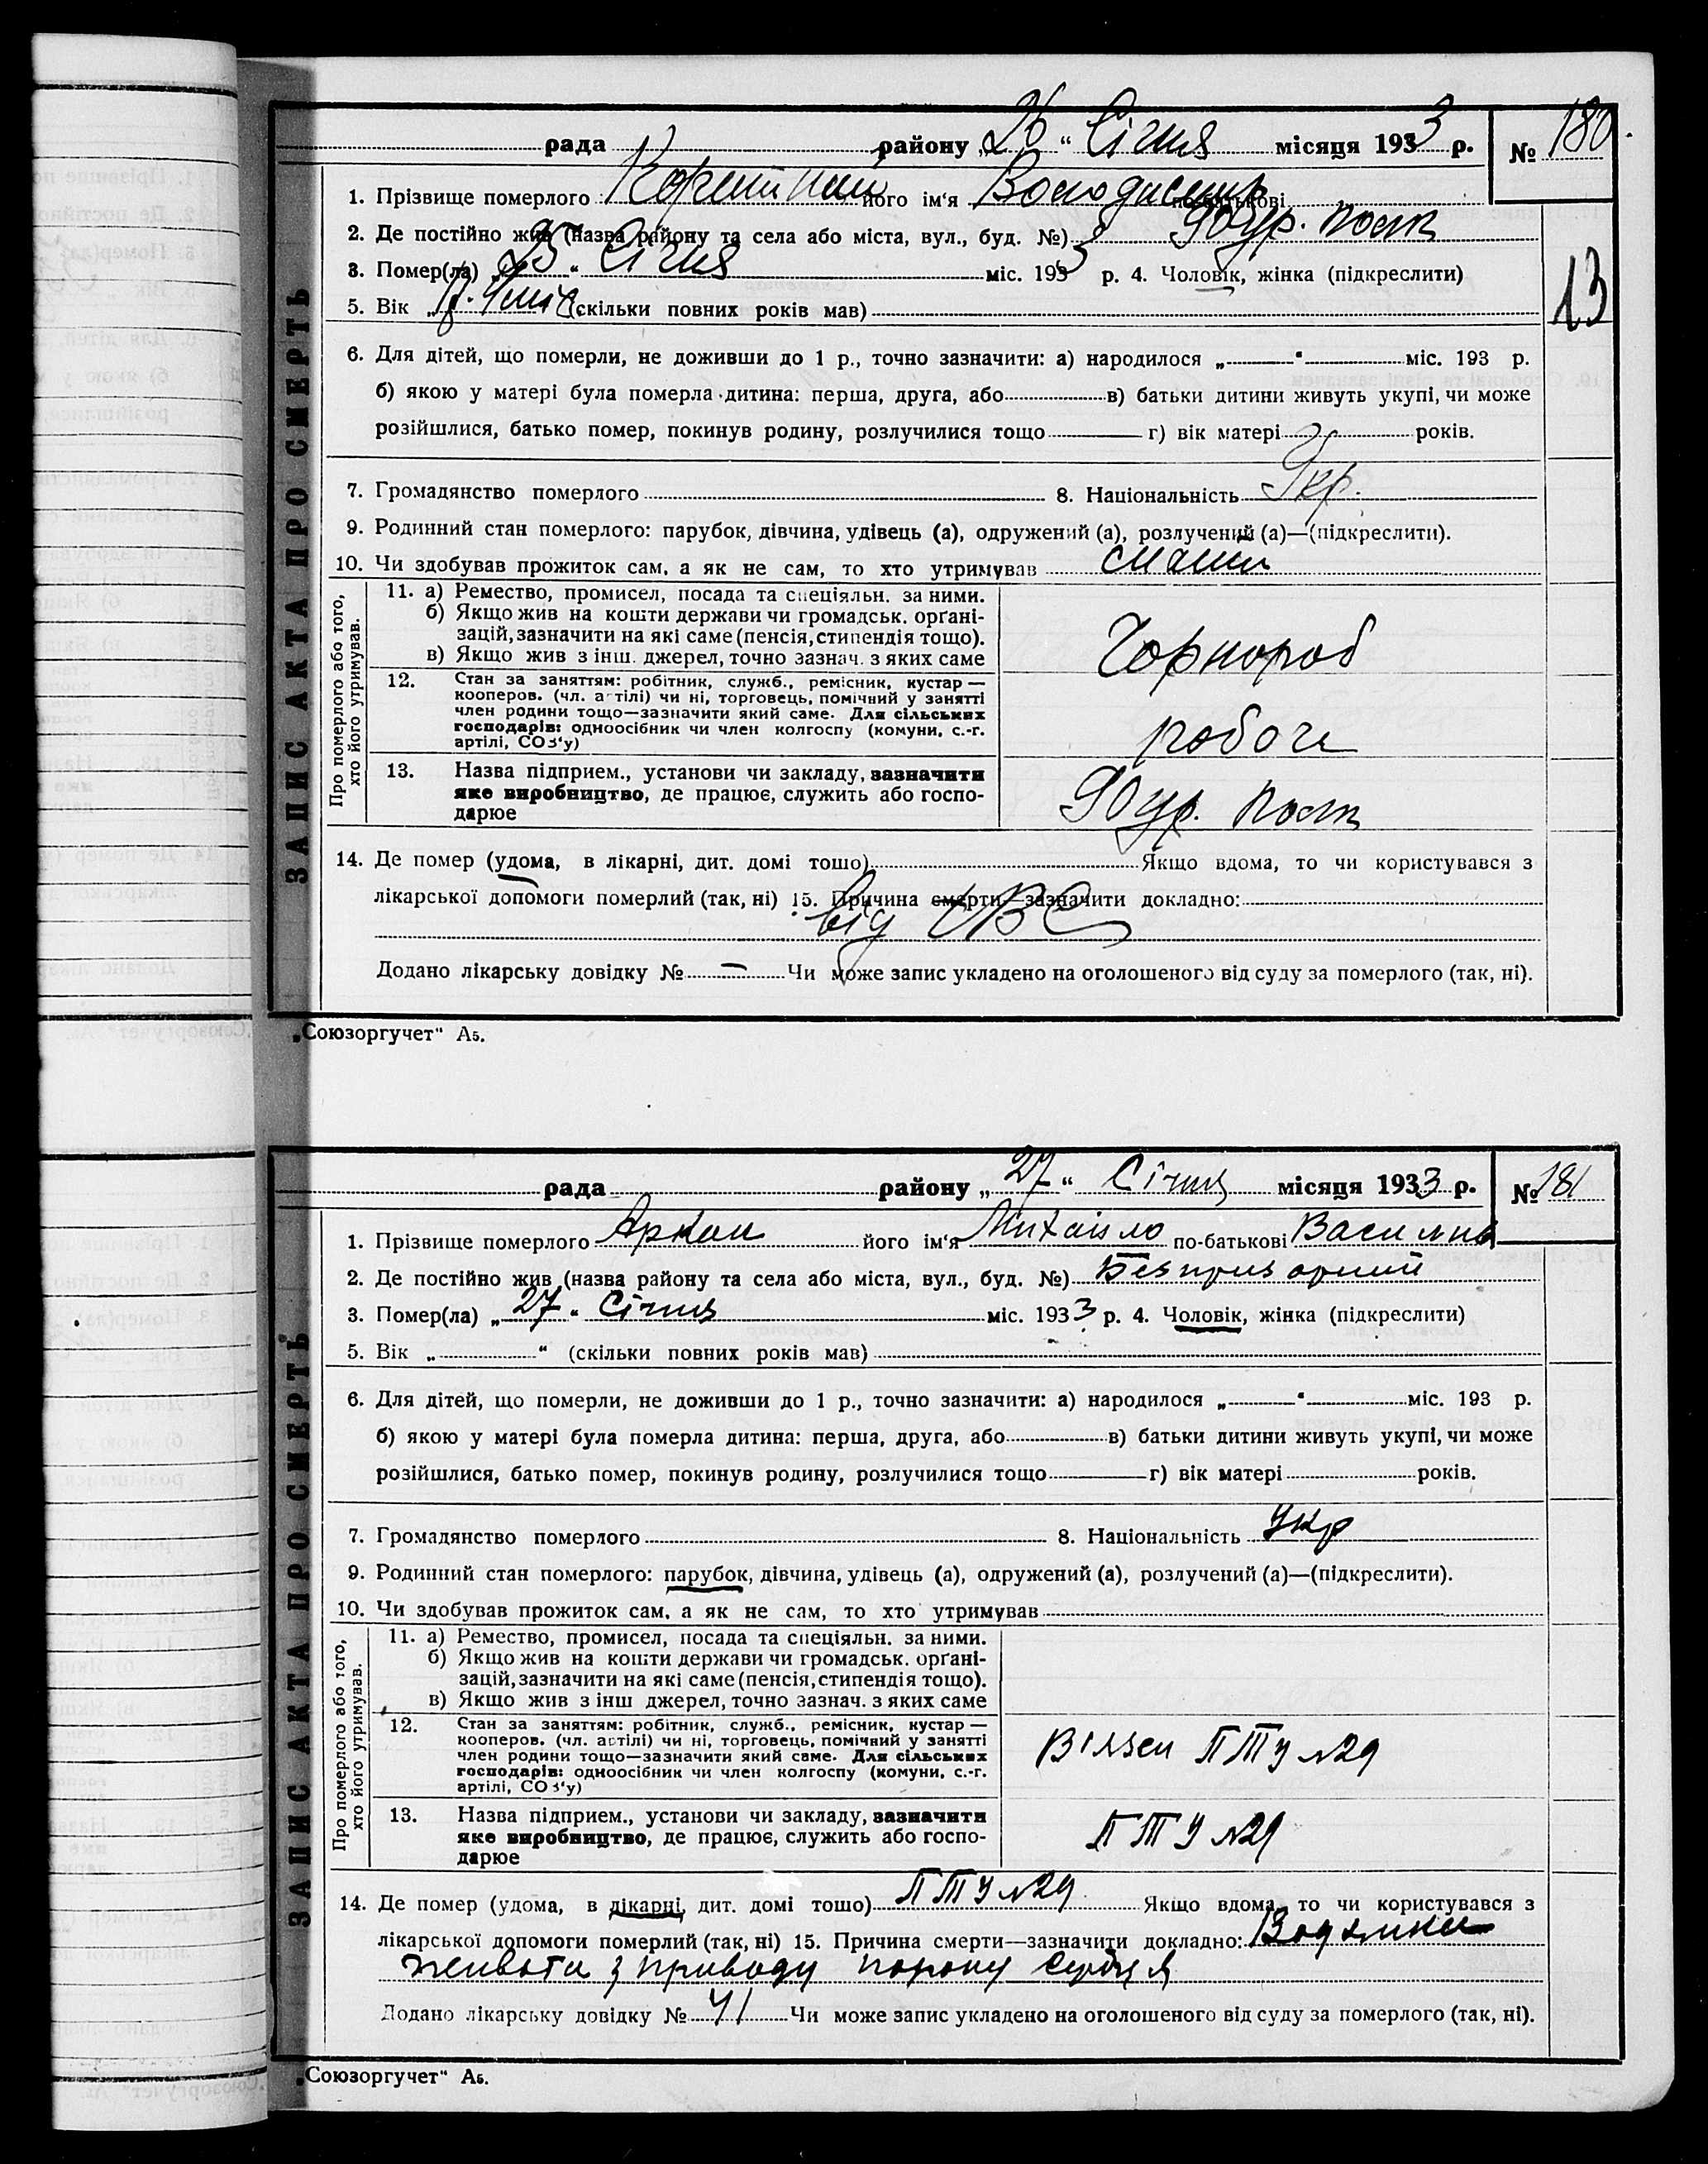 рада районну „26“ Січня місяця 1933 р. № 180.
1. Прізвище померлого його ім'я Володимир по-батькові
2. Де постійно жив (назва району та села або міста, вул., буд. №)
3. Помер(ла) „25“ Січня міс. 1933 р. 4. Чоловік, жінка (підкреслити)
13
5. Вік „ “ (скільки повних років мав)
6. Для дітей, що померли, не доживши до 1 р., точно зазначити: а) народилося „ “ міс. 193 р.
б) якою у матері була померла дитина: перша, друга, або в) батьки дитини живуть укупі, чи може
розійшлися, батько помер, покинув родину, розлучилися тощо г) вік матері років.
7. Громадянство померлого 8. Національність Укр.
9. Родинний стан померлого: парубок, дівчина, удівець (а), одружений (а), розлучений (а)—(підкреслити).
10. Чи здобував прожиток сам, а як не сам, то хто утримував
ЗАПИС АКТА ПРО СМЕРТЬ
Про померлого або того, хто його утримував.
11. а) Ремество, промисел, посада та спеціяльн. за ними.
б) Якщо жив на кошти держави чи громадськ. орґані-
зацій, зазначити на які саме (пенсія, стипендія тощо).
в) Якщо жив з інш. джерел, точно зазнач. з яких саме
Чорнороб
12. Стан за заняттям: робітник, служб., ремісник, кустар —
кооперов. (чл. артілі) чи ні, торговець, помічний у занятті
член родини тощо—зазначити який саме. Для сільських
господарів: одноосібник чи член колгоспу (комуни, с.-г.
артілі, СОЗ'у)
робоч
13. Назва підприєм., установи чи закладу, зазначити
яке виробництво, де працює, служить або госпо-
дарює
14. Де помер (удома, в лікарні, дит. домі тощо) Якщо вдома, то чи користувався з
лікарської допомоги померлий (так, ні) 15. Причина смерти—зазначити докладно:
від
Додано лікарську довідку № — Чи може запис укладено на оголошеного від суду за померлого (так, ні).
„Союзоргучет“ А5.
рада району „27“ Січня місяця 1933 р. № 181
1. Прізвище померлого його ім'я Михайло по-батькові
2. Де постійно жив (назва району та села або міста, вул., буд. №) Безпризорний
3. Помер(ла) „27“ Січня міс. 1933 р. 4. Чоловік, жінка (підкреслити)
5. Вік „ “ (скільки повних років мав)
6. Для дітей, що померли, не доживши до 1 р., точно зазначити: а) народилося „ “ міс. 193 р.
б) якою у матері була померла дитина: перша, друга, або в) батьки дитини живуть укупі, чи може
розійшлися, батько помер, покинув родину, розлучилися тощо г) вік матері років.
7. Громадянство померлого 8. Національність Укр
9. Родинний стан померлого: парубок, дівчина, удівець (а), одружений (а), розлучений (а)—(підкреслити).
10. Чи здобував прожиток сам, а як не сам, то хто утримував
ЗАПИС АКТА ПРО СМЕРТЬ
Про померлого або того, хто його утримував.
11. а) Ремество, промисел, посада та спеціяльн. за ними.
б) Якщо жив на кошти держави чи громадськ. орґані-
зацій, зазначити на які саме (пенсія, стипендія тощо).
в) Якщо жив з інш джерел, точно зазнач. з яких саме
12. Стан за заняттям: робітник, служб., ремісник, кустар —
кооперов. (чл. артілі) чи ні, торговець, помічний у занятті
член родини тощо—зазначити який саме. Для сільських
господарів: одноосібник чи член колгоспу (комуни, с.-г.
артілі, СОЗ'у)
ПТУ №29
13. Назва підприєм., установи чи закладу, зазначити
яке виробництво, де працює, служить або госпо-
дарює
ПТУ №29
14. Де помер (удома, в лікарні, дит. домі тощо) ПТУ №29 Якщо вдома, то чи користувався з
лікарської допомоги померлий (так, ні) 15. Причина смерти—зазначити докладно: Водянка
живота з приводу пороку серця
Додано лікарську довідку № 41 Чи може запис укладено на оголошеного від суду за померлого (так, ні).
„Союзоргучет“ А5.